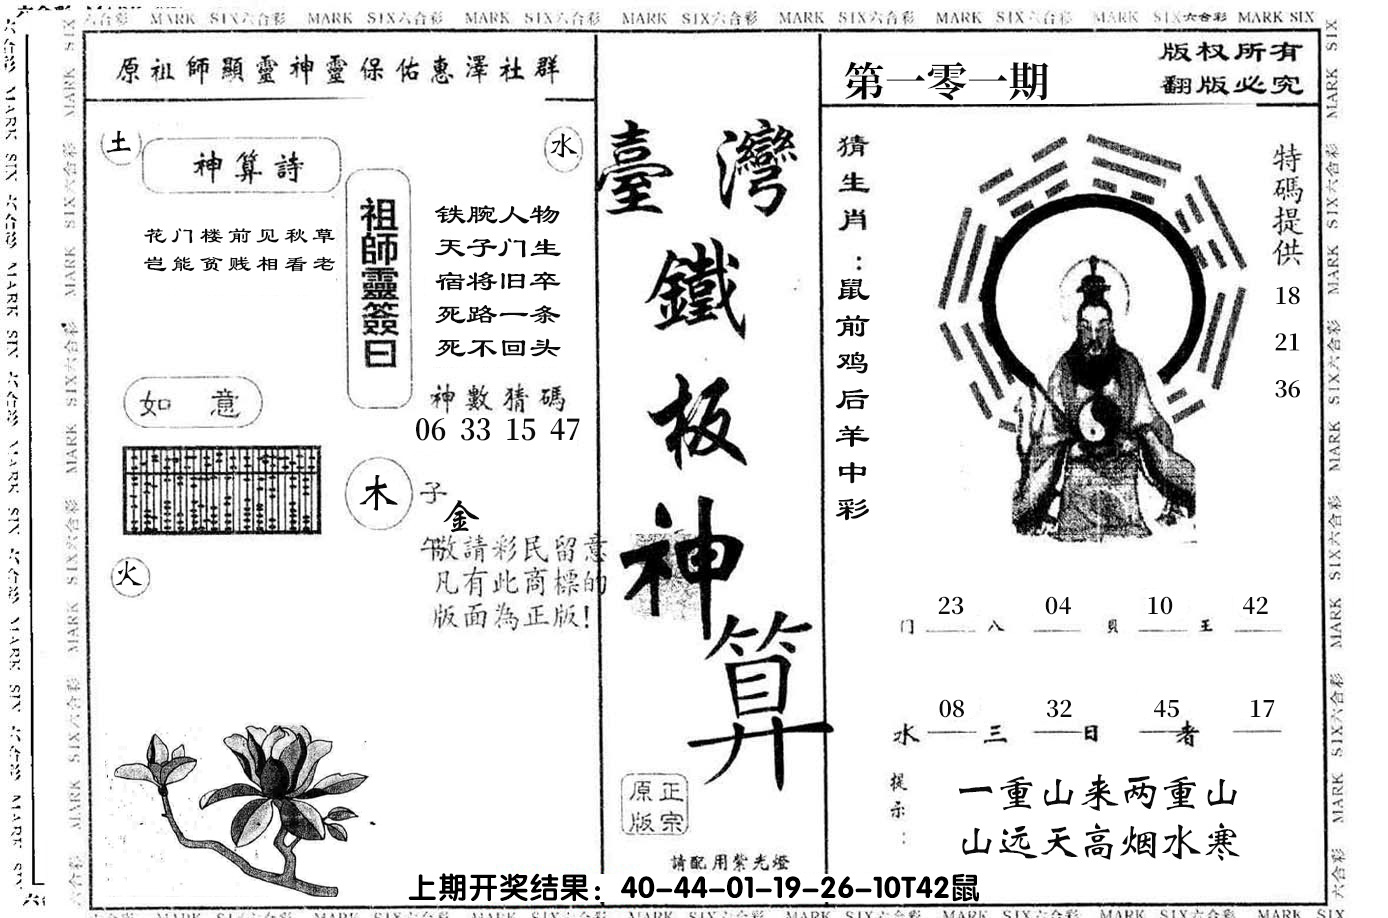 MARK SIX六合彩 MARK SIX六合彩 MARK SIX六合彩 MARK SIX六合彩 MARK SIX六合彩 MARK SIX六合彩 MARK SIX六合彩 MARK SIX
原祖師顯靈神靈保佑惠澤社群
土
神算詩
水
花门楼前见秋草
岂能贫贱相看老
祖師靈簽曰
铁腕人物
天子门生
宿将旧卒
死路一条
死不回头
神數猜碼
06 33 15 47
如意
木
子
金
午
火
敬請彩民留意
凡有此商標的
版面為正版!
臺灣
鐵
板
神
算
正宗
原版
請配用紫光燈
第一零一期
版权所有
翻版必究
猜生肖:鼠前鸡后羊中彩
特碼提供
18
21
36
23 04 10 42
门 八 貝 王
08 32 45 17
水 三 日 者
提示:
一重山来两重山
山远天高烟水寒
上期开奖结果：40-44-01-19-26-10T42鼠